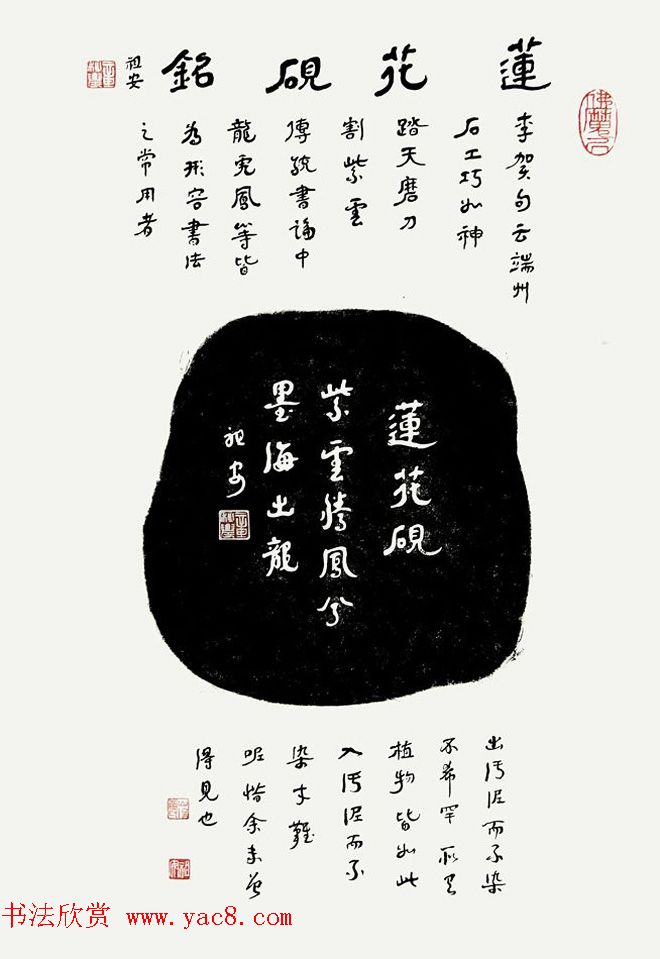 蓮花硯銘
祖安
李賀句云端州
石工巧如神
踏天磨刀
割紫雲
傳統書論中
龍虎鳳等皆
為形容書法
之常用者
蓮花硯
紫雲騰鳳兮
墨海出龍
祖安
出污泥而不染
不希罕所見
植物皆如此
入污泥而不
染才難
呢惜余未曾
得見也
书法欣赏 www.yac8.com